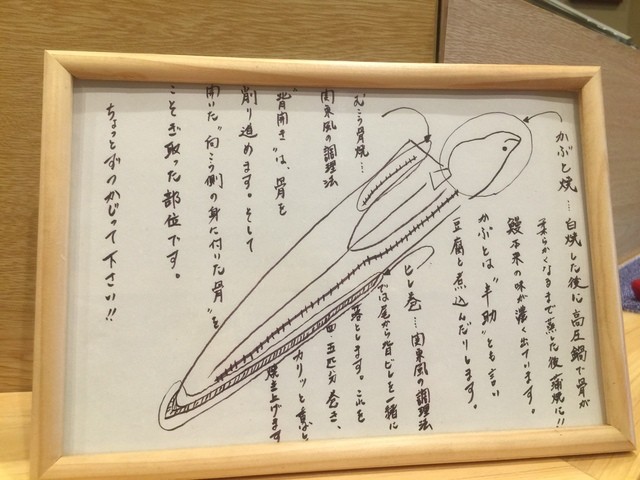 かぶと焼…白焼した後に高圧鍋で骨が
柔らかくなるまで蒸した後蒲焼に!!
鰻本来の味が濃く出ています。
かぶとは"半助"とも言い
豆腐と煮込んだりします。
ヒレ巻…関東風の調理法
では尾から背ビレを一緒に
落とします。これを
四、五匹分巻き、
カリッと香ばし
焼き上げます
むこう骨焼…
関東風の調理法
"背開き"は、骨を
削り進めます。そして
開いた"向こう側の身に付いた骨"を
こそぎ取った部位です。
ちょっとずつかじって下さい!!